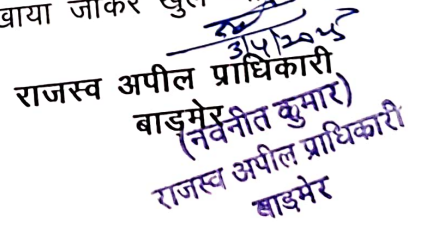 खाया जाकर खुल
3/4/2025
राजस्व अपील प्राधिकारी
बाड़मेर
(नवनीत कुमार)
राजस्व अपील प्राधिकारी
बाड़मेर